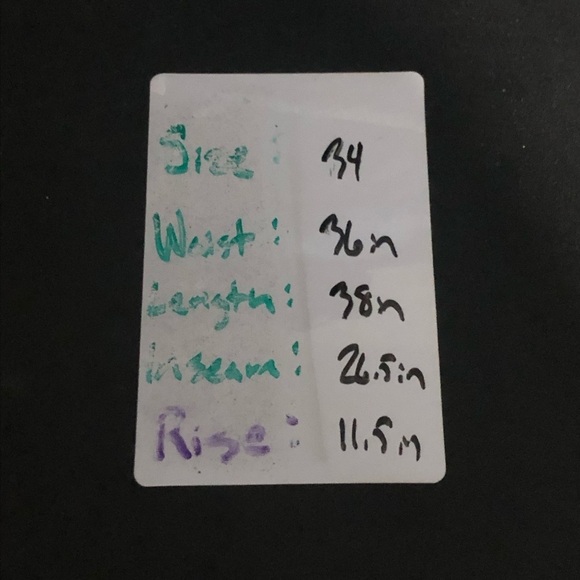 Size: 34
Waist: 36in
Length: 38in
Inseam: 26.5in
Rise: 11.5in